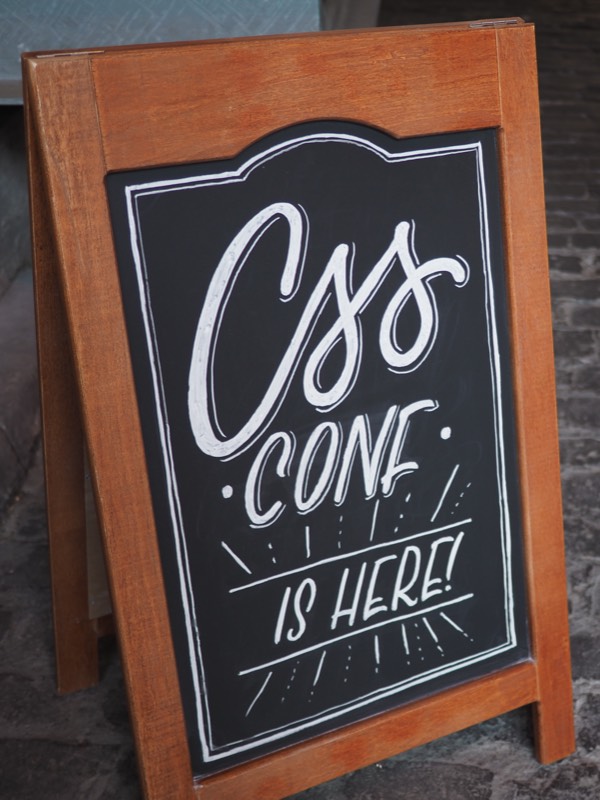 Css
CONF
IS HERE!